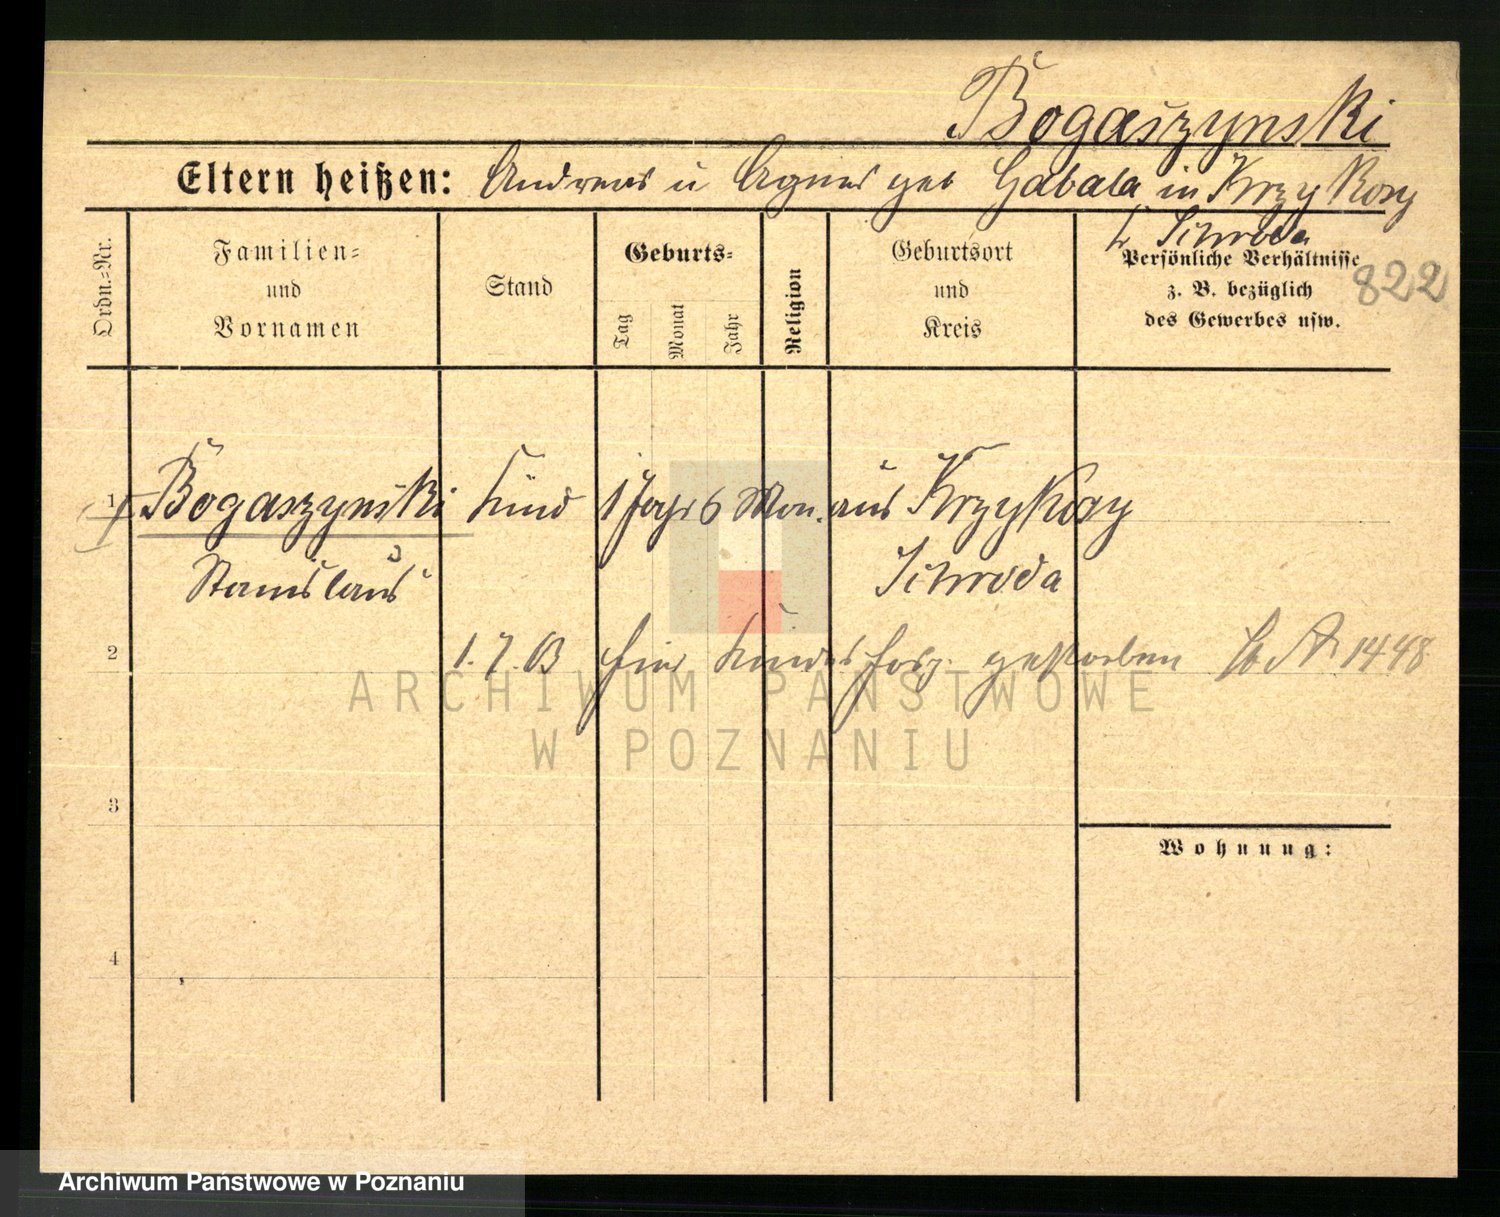 Bogaszynski
Eltern heißen: Andreas u Agnes geb Gabala in KrzyKosy
Kr. Schroda
822
Ordn.=Nr.
Familien=
und
Vornamen
Stand
Geburts=
Tag
Monat
Jahr
Religion
Geburtsort
und
Kreis
Persönliche Verhältnisse
z. B. bezüglich
des Gewerbes usw.
1 Bogaszynski Kind 1 Jahr 6 Mon. aus KrzyKosy
Stanislaus Schroda
2 1. 7. 13 hier Kindes gestorben 1448
3
4
Wohnung:
ARCHIWUM PAŃSTWOWE
W POZNANIU
Archiwum Państwowe w Poznaniu